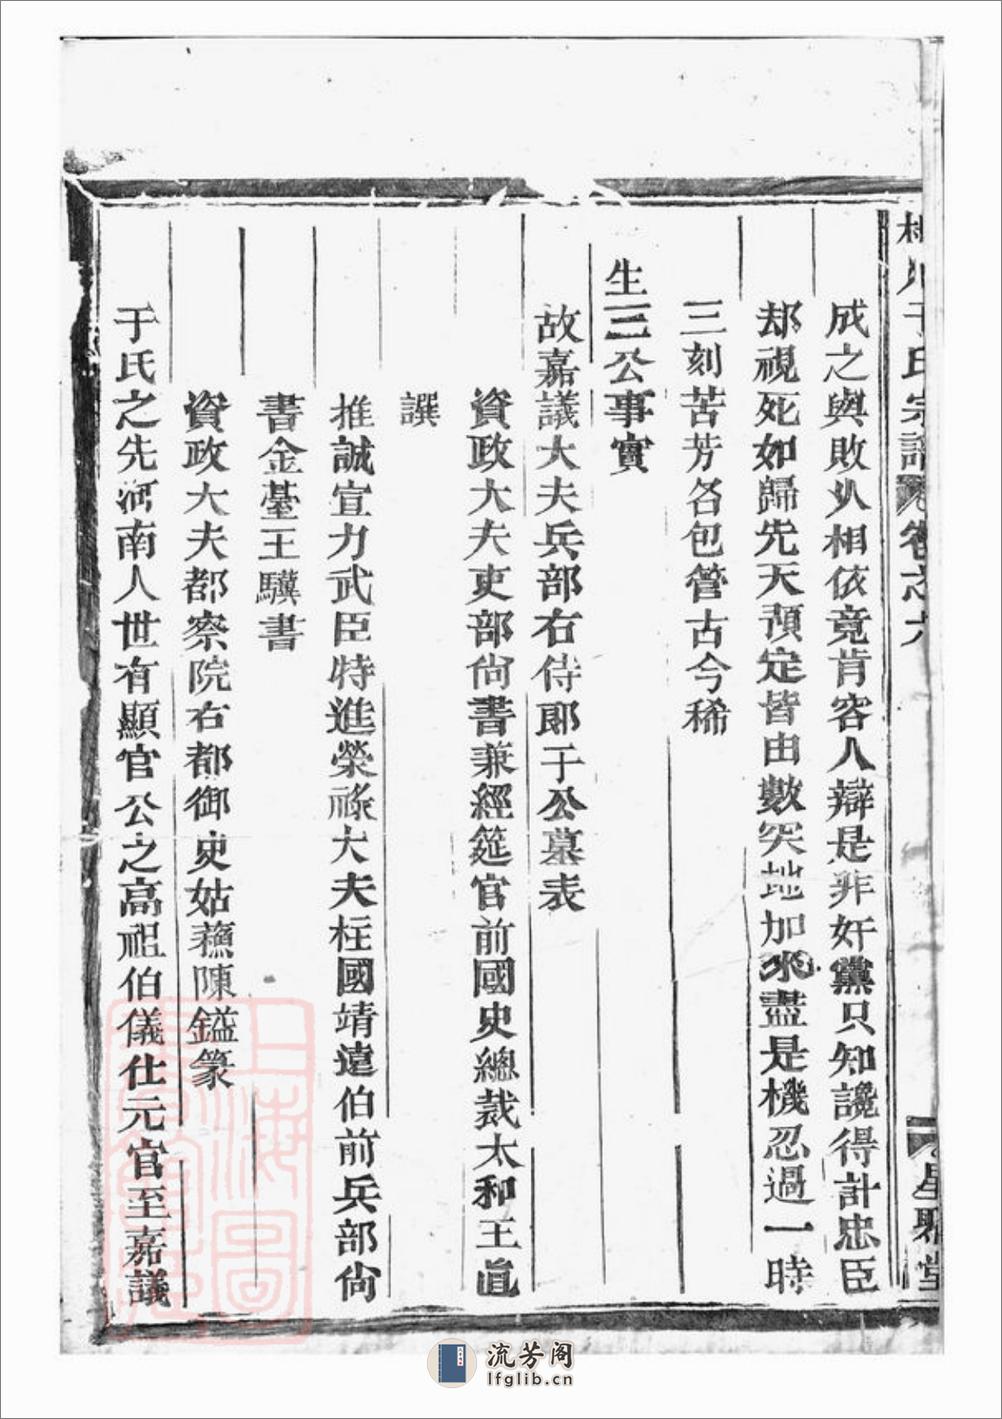 于氏宗譜 卷之六
成之與敗以相依竟肯容人辯是非奸黨只知讒得計忠臣
却視死如歸先天預定皆由數突地加來盡是機忍過一時
三刻苦芳名包管古今稀
生三公事實
故嘉議大夫兵部右侍郎于公墓表
資政大夫吏部尙書兼經筵官前國史總裁太和王直
譔
推誠宣力武臣特進榮祿大夫柱國靖遠伯前兵部尙
書金臺王驥書
資政大夫都察院右都御史姑蘓陳鎰篆
于氏之先河南人世有顯官公之高祖伯儀仕元官至嘉議
星聚堂
上海圖
流芳阁
lfglib.cn